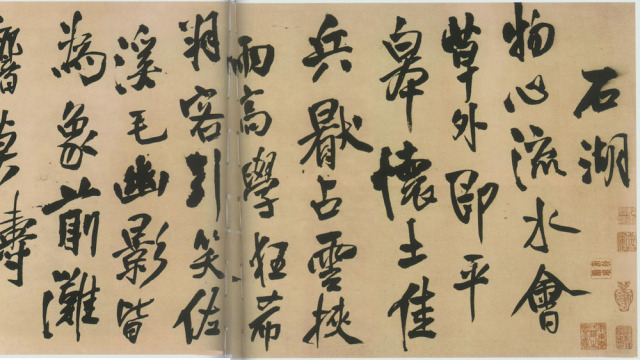 石湖
物心流水會
草外即平
皋懷土佳
兵厭占雲挾
雨高學狂希
羽客引笑佐
溪毛幽影皆
為象前灘
壽